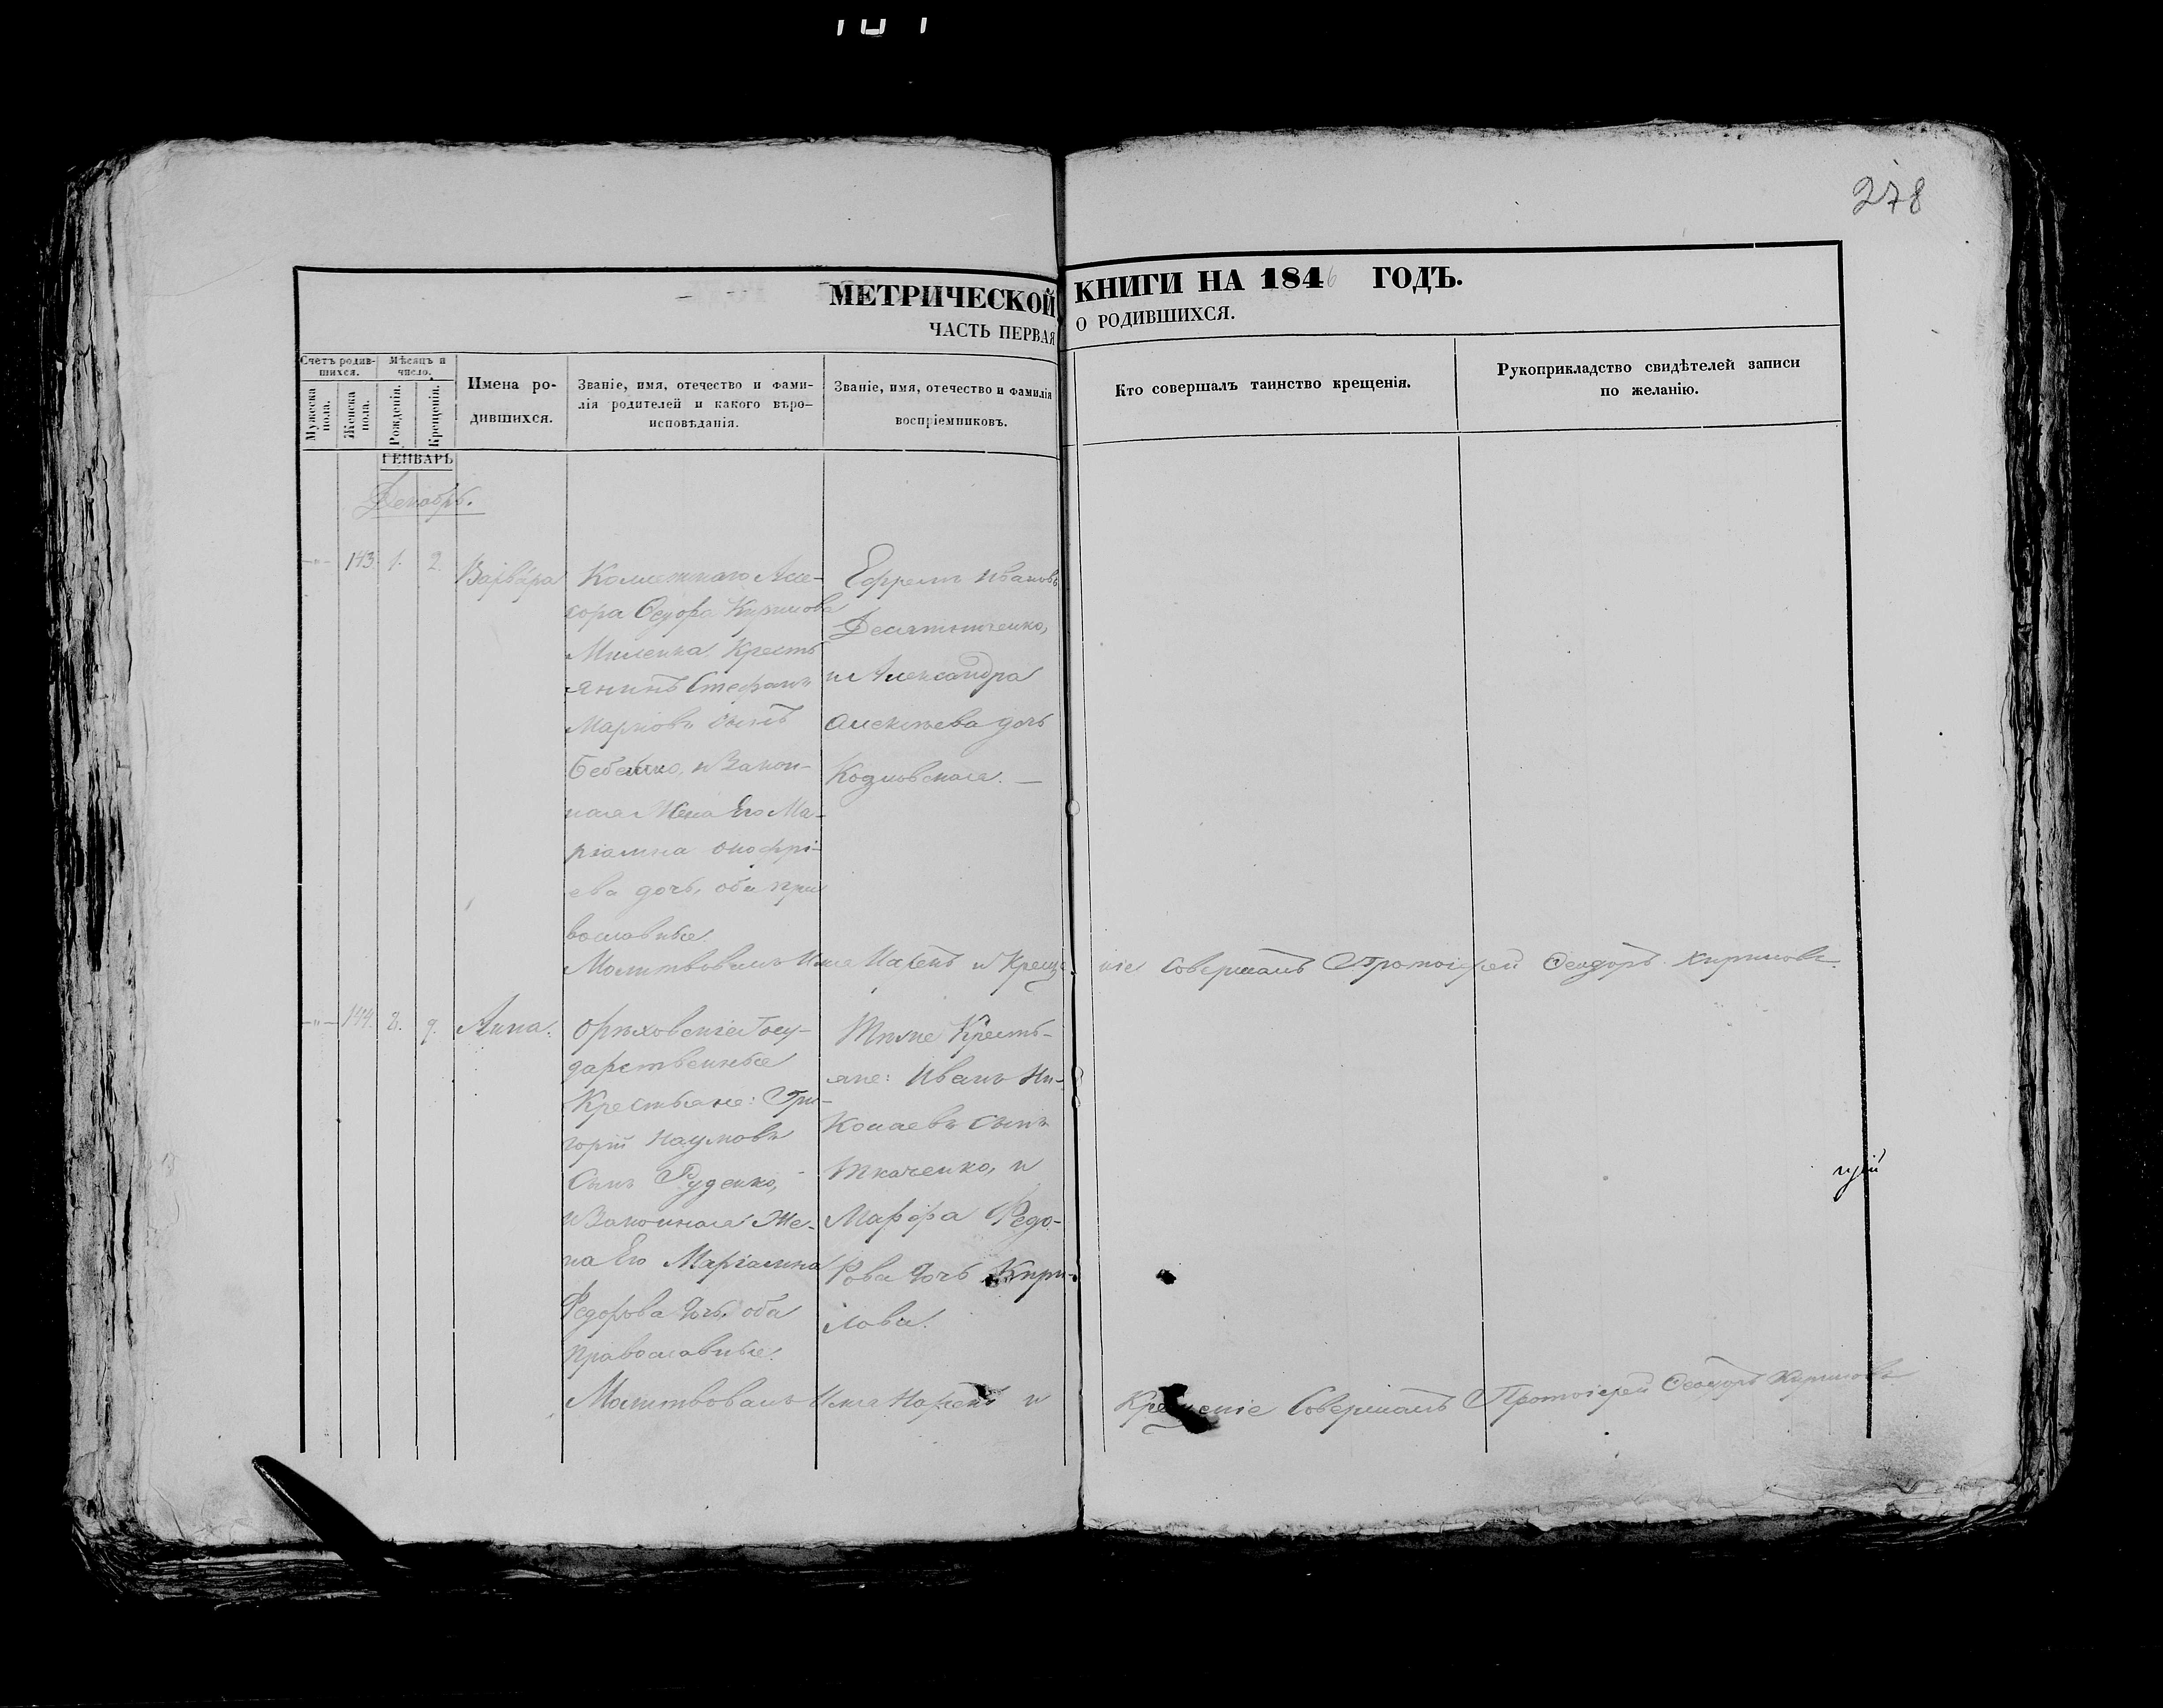 278
МЕТРИЧЕСКОЙ КНИГИ НА 1846 ГОДЪ.
ЧАСТЬ ПЕРВАЯ О РОДИВШИХСЯ.
Счетъ родив-
шихся.
Мужеска пола.
Женска пола.
Мѣсяцъ и
число.
Рожденія.
Крещенія.
Имена ро-
дившихся.
Званіе, имя, отечество и фами-
лія родителей и какого вѣро-
исповѣданія.
Званіе, имя, отечество и фамилія
воспріемниковъ.
Кто совершалъ таинство крещенія.
Рукоприкладство свидѣтелей записи
по желанію.
ГЕНВАРЬ
Декабрь.
143. 1. 2. Варвара
Коллежнаго Ассе-
сора Федора Кирилова
Миленка Кресть
янинъ Стефанъ
Марковъ сынъ
и Закон-
ная Жена Его Ма-
ріамна Онофрі-
ева дочь, оба пра
вославные.
Ефремъ Ивановъ
и Александра
Алексѣева дочь
Козловская. —
Молитвовалъ Имя Нарекъ и Креще ніе Совершалъ Протоіерей Феодоръ Кириловъ.
144. 8. 9. Анна.
Орѣховскіе Госу-
дарственные
Крестьяне: Гри-
горій Наумовъ
Сынъ Руденко,
и Законная Же-
на Его Маріамна
Федорова дочь, оба
православные.
Тѣже Кресть-
яне: Иванъ Ни-
колаевъ Сынъ
Ткаченко, и
Марфа Федо-
рова дочь Кири-
лова.
Молитвовалъ Имя Нарекъ и Крещеніе Совершалъ Протоіерей Феодоръ Кириловъ